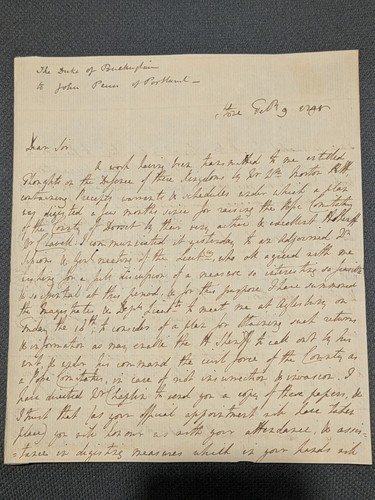 The Duke of Buckingham
to John Penn of Portland —
Stowe Feb. 9
Dear Sir
A work having been transmitted to me entitled
Thoughts on the Defence of these Kingdoms by
containing Precepts warrants & schedules under which a plan
was digested a few months since for raising the Posse Comitatus
of the County of Dorset by their very active & excellent H. Sheriff
Mr I communicated it yesterday to an Adjourned
Sessions & Genl meeting of the Lieutcy, who all agreed with me
in for a full discussion of a measure so interesting so
& so at this period. & for this purpose I have summoned
the Magistrates & Depy Lieuts to meet me at Aylesbury on
Monday the to consider of a plan for obtaining such returns
& information as may enable the H. Sheriff to call out by his
writ, & under his command the civil force of the County as
a Posse Comitatus, in case of insurrection & invasion. I
have directed Mr Chaplin to send you a copy of these papers, &
I trust that (as your official appointment will have taken
place) you will honour us with your attendance, & assis-
-tance in digesting measures which in your hands will